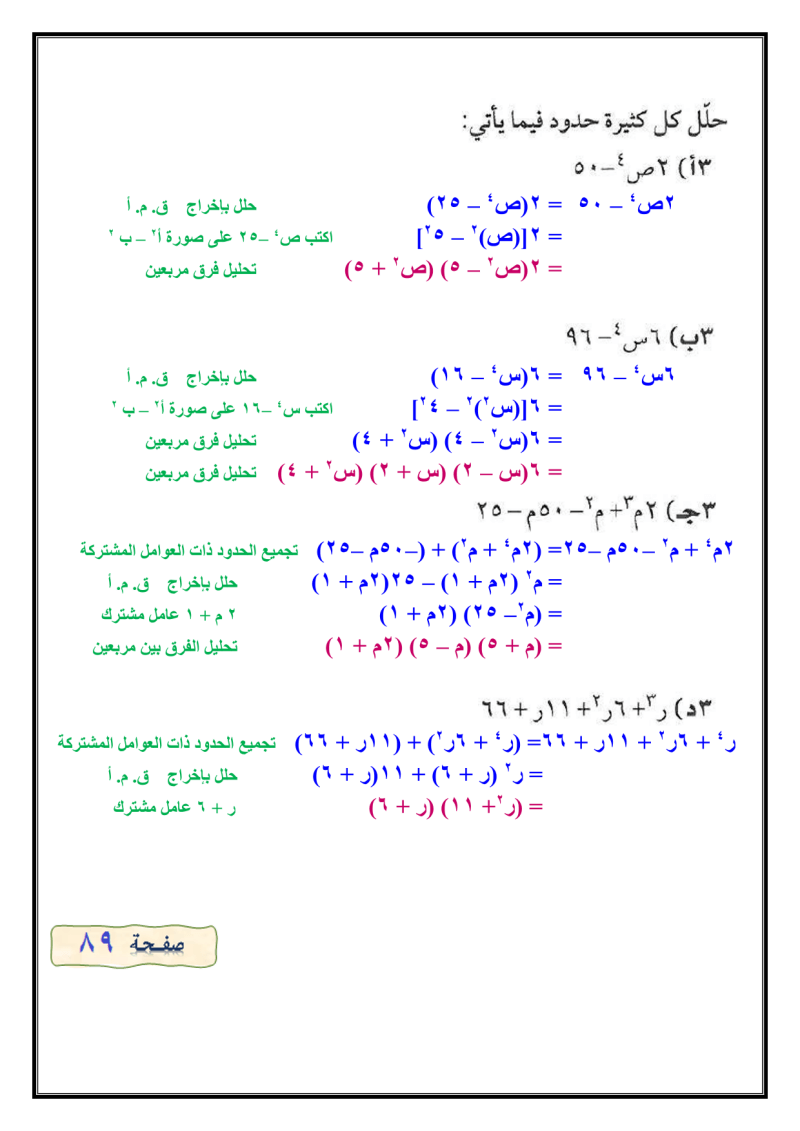 حلّل كل كثيرة حدود فيما يأتي:
٣أ) ٢ص⁴–٥٠
٢ص⁴ – ٥٠ = ٢(ص⁴ – ٢٥) حلل بإخراج ق. م. أ
= ٢[(ص)² – ٥²] اكتب ص⁴ –٢٥ على صورة أ² – ب²
= ٢(ص² – ٥) (ص² + ٥) تحليل فرق مربعين
٣ب) ٦س⁴– ٩٦
٦س⁴ – ٩٦ = ٦(س⁴ – ١٦) حلل بإخراج ق. م. أ
= ٦[(س²)² – ٤²] اكتب س⁴ –١٦ على صورة أ² – ب²
= ٦(س² – ٤) (س² + ٤) تحليل فرق مربعين
= ٦(س – ٢) (س + ٢) (س² + ٤) تحليل فرق مربعين
٣جـ) ٢م³+ م²– ٥٠م – ٢٥
٢م⁴ + م² –٥٠م –٢٥= (٢م⁴ + م²) + (–٥٠م –٢٥) تجميع الحدود ذات العوامل المشتركة
= م² (٢م + ١) – ٢٥(٢م + ١) حلل بإخراج ق. م. أ
= (م²– ٢٥) (٢م + ١) ٢ م + ١ عامل مشترك
= (م + ٥) (م – ٥) (٢م + ١) تحليل الفرق بين مربعين
٣د) ر³+ ٦ر²+ ١١ر + ٦٦
ر⁴ + ٦ر² + ١١ر + ٦٦= (ر⁴ + ٦ر²) + (١١ر + ٦٦) تجميع الحدود ذات العوامل المشتركة
= ر² (ر + ٦) + ١١(ر + ٦) حلل بإخراج ق. م. أ
= (ر²+ ١١) (ر + ٦) ر + ٦ عامل مشترك
صفحة ٨٩